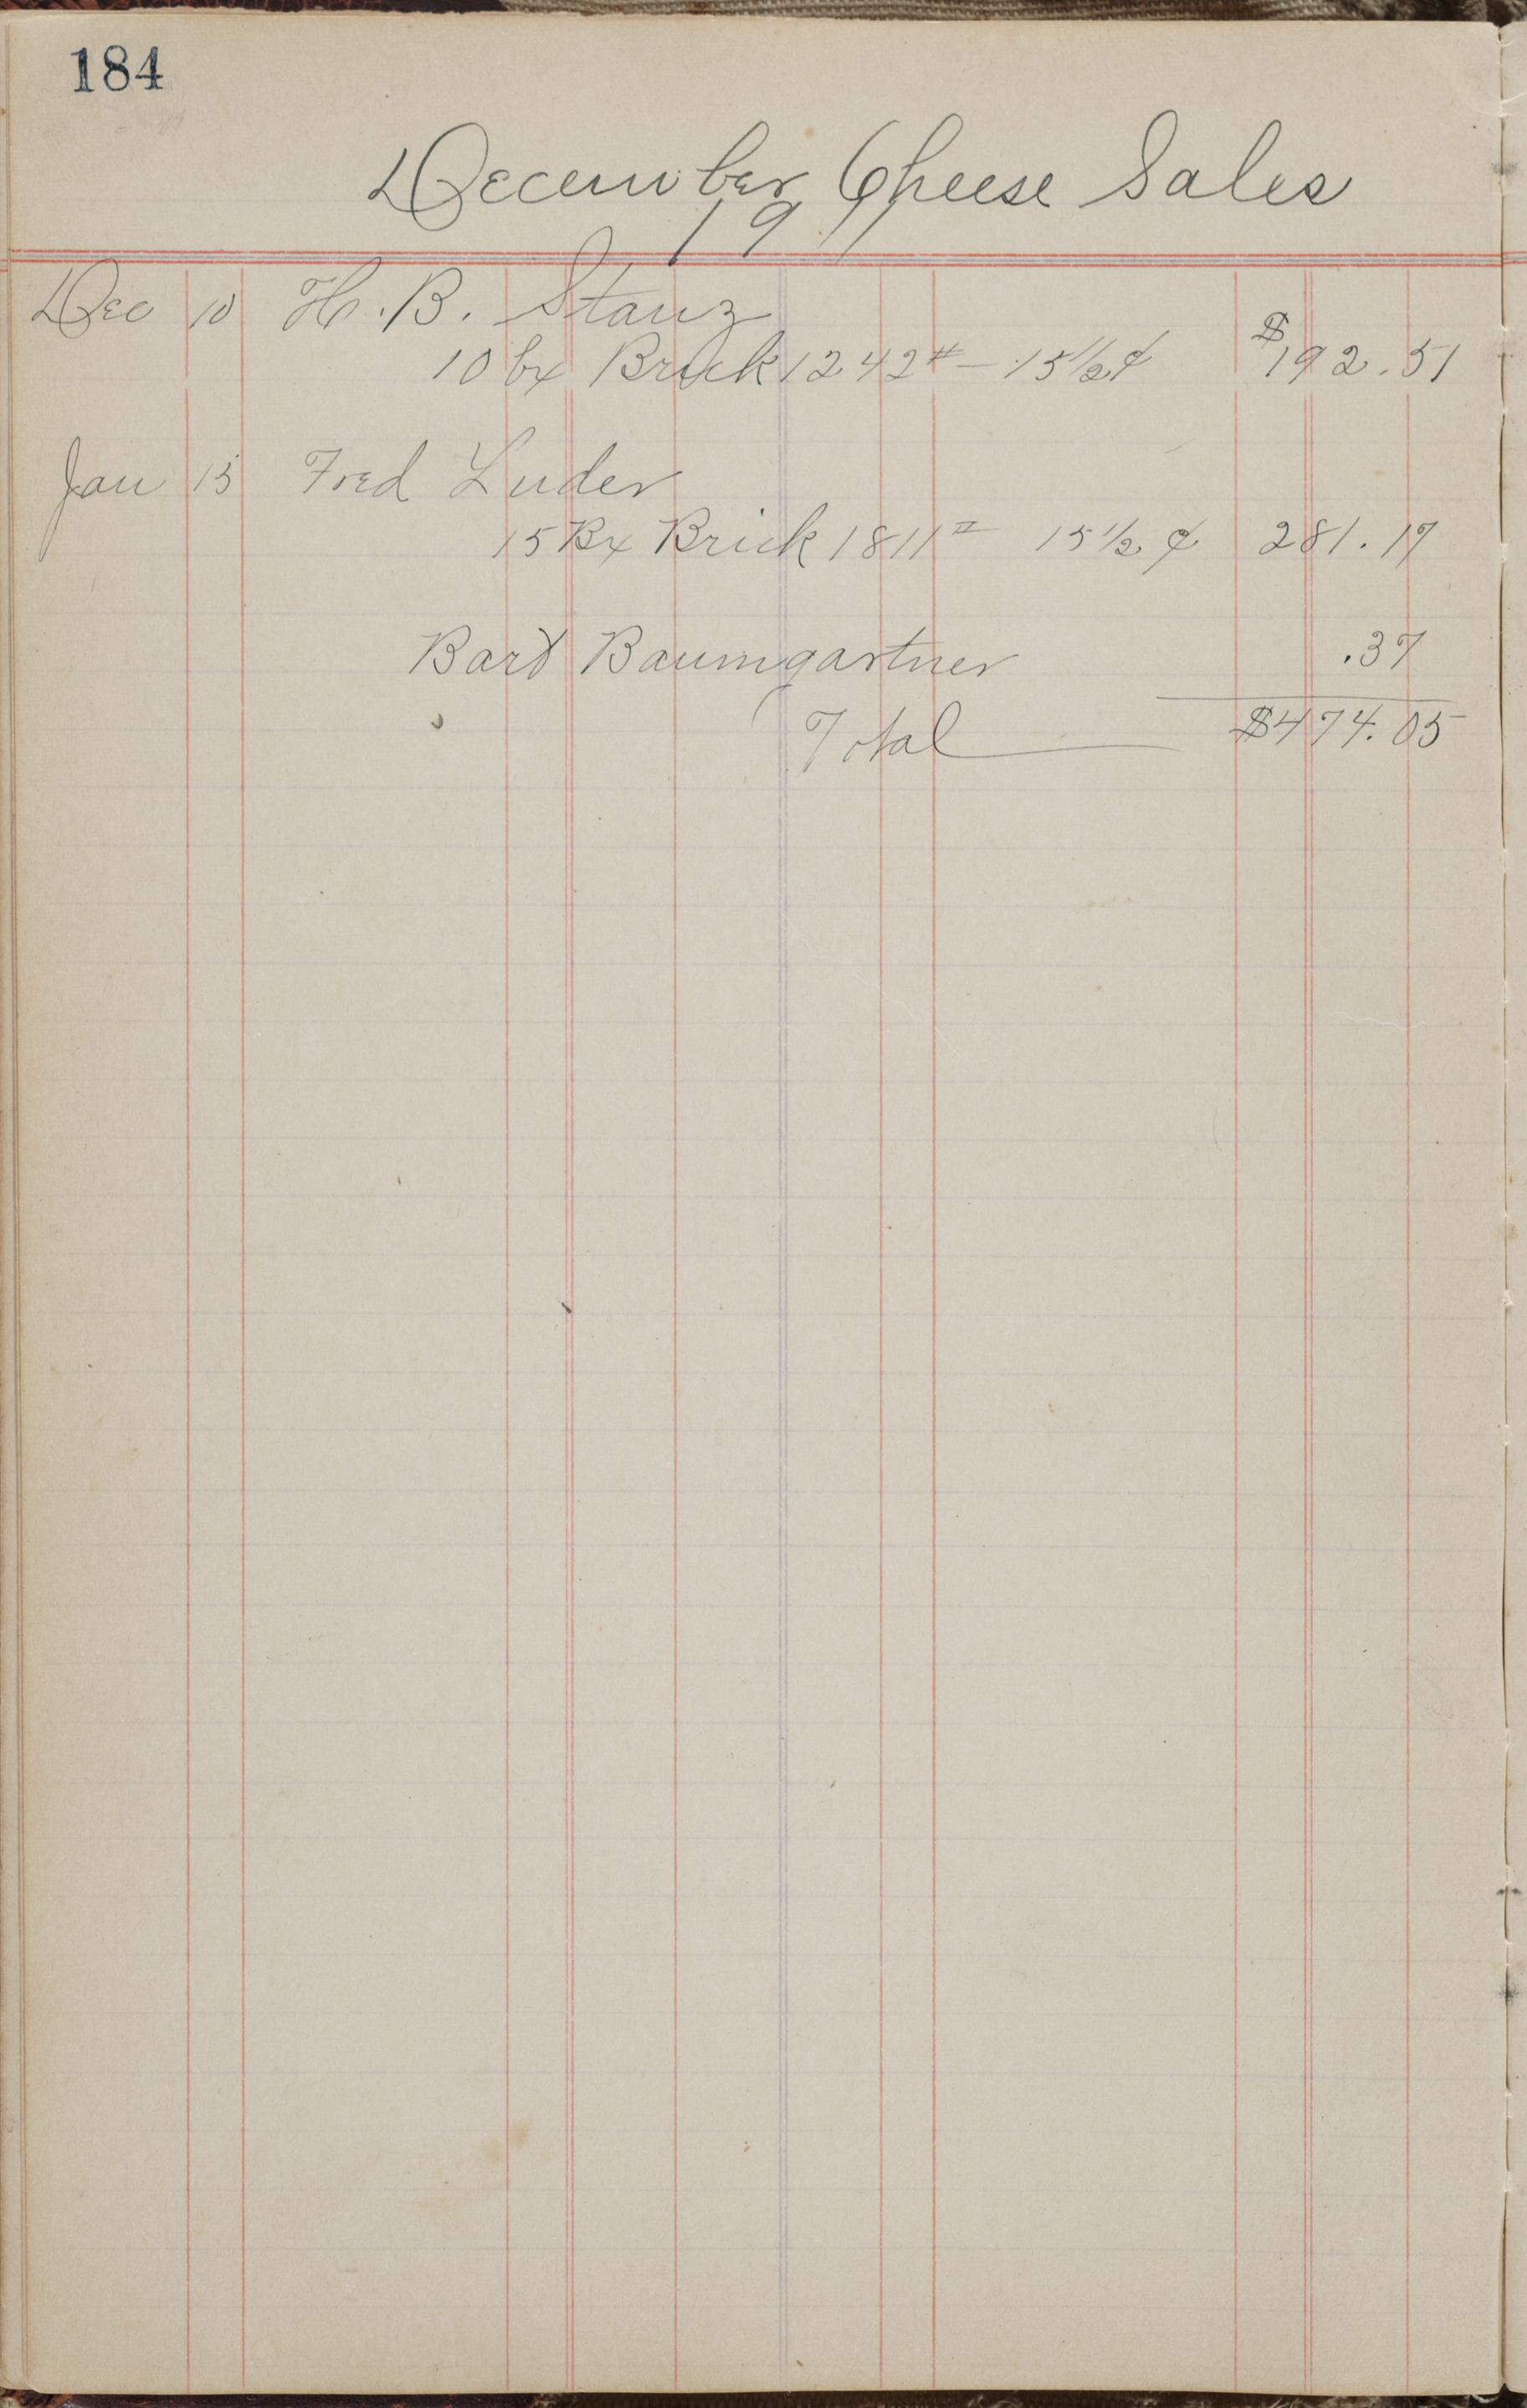 184
December Cheese Sales
1911
Dec 10 H. B. Stanz
10 bx Brick 1242# — 15 1/2 ¢ $192.51
Jan 15 Fred Luder
15 Bx Brick 1811# 15 1/2 ¢ 281.17
Bart Baumgartner .37
Total $474.05